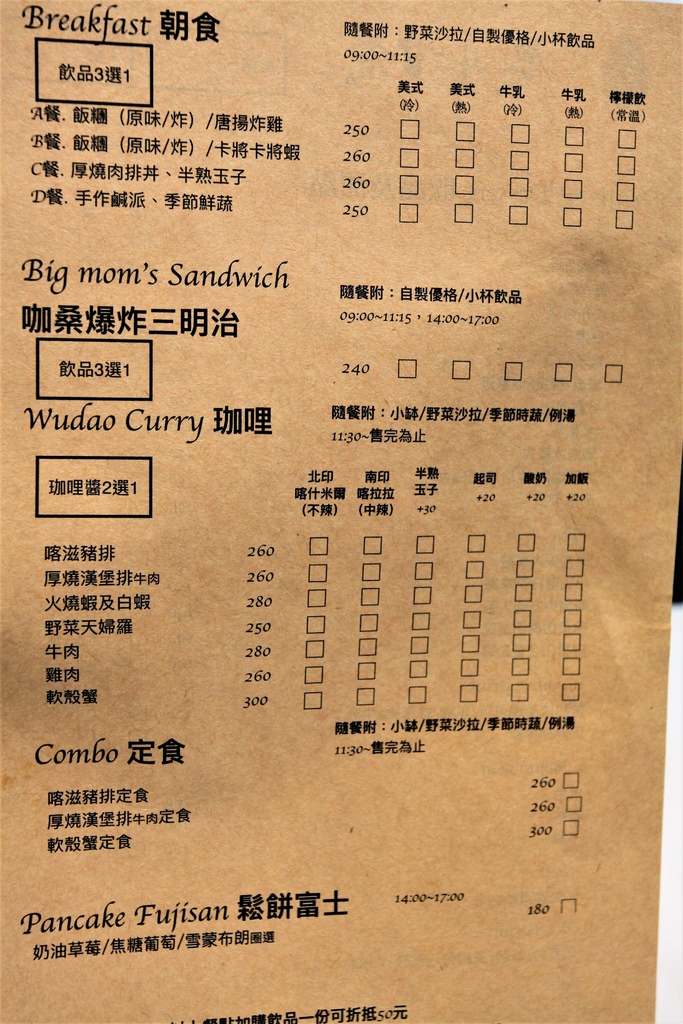 Breakfast 朝食
隨餐附：野菜沙拉/自製優格/小杯飲品
09:00~11:15
飲品3選1
美式(冷) 美式(熱) 牛乳(冷) 牛乳(熱) 檸檬飲(常溫)
A餐. 飯糰（原味/炸）/唐揚炸雞 250 □ □ □ □ □
B餐. 飯糰（原味/炸）/卡將卡將蝦 260 □ □ □ □ □
C餐. 厚燒肉排丼、半熟玉子 260 □ □ □ □ □
D餐. 手作鹹派、季節鮮蔬 250 □ □ □ □ □
Big mom's Sandwich
咖桑爆炸三明治
隨餐附：自製優格/小杯飲品
09:00~11:15，14:00~17:00
飲品3選1
240 □ □ □ □ □
Wudao Curry 珈哩
隨餐附：小缽/野菜沙拉/季節時蔬/例湯
11:30~售完為止
珈哩醬2選1
北印喀什米爾（不辣） 南印喀拉拉（中辣） 半熟玉子+30 起司+20 酸奶+20 加飯+20
喀滋豬排 260 □ □ □ □ □ □
厚燒漢堡排牛肉 260 □ □ □ □ □ □
火燒蝦及白蝦 280 □ □ □ □ □ □
野菜天婦羅 250 □ □ □ □ □ □
牛肉 280 □ □ □ □ □ □
雞肉 260 □ □ □ □ □ □
軟殼蟹 300 □ □ □ □ □ □
Combo 定食
隨餐附：小缽/野菜沙拉/季節時蔬/例湯
11:30~售完為止
喀滋豬排定食 260 □
厚燒漢堡排牛肉定食 260 □
軟殼蟹定食 300 □
Pancake Fujisan 鬆餅富士 14:00~17:00 180 □
奶油草莓/焦糖葡萄/雪蒙布朗圈選
餐點加購飲品一份可折抵50元